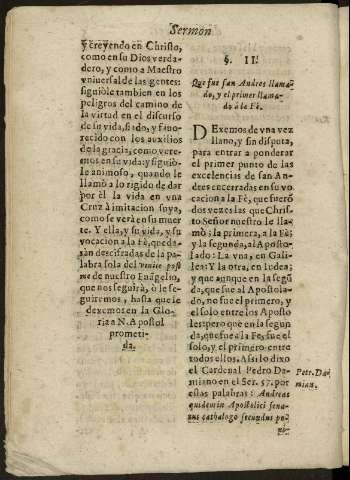 Sermon
y creyendo en Christo,
como en su Dios verda-
dero, y como a Maestro
vniuersal de las gentes:
siguiòle tambien en los
peligros del camino de
la virtud en el discurso
de su vida, fiado, y fauo-
recido con los auxilios
de la gracia, como vere-
mos en su vida: y siguiò-
le animoso, quando le
llamò a lo rigido de dar
por èl la vida en vna
Cruz à imitacion suya,
como se verà en su muer
te. Y ella, y su vida, y su
vocacion a la Fè, queda-
ràn descifradas de la pa-
labra sola del venite post
me de nuestro Euãgelio,
que nos seguirà, ò le se-
guiremos, hasta que le
dexemos en la Glo-
ria a N. Apostol
prometi-
da.
§. II.
Que fue san Andres llama-
do, y el primer llama-
do à la Fè.
DExemos de vna vez
llano, y sin disputa,
para entrar a ponderar
el primer punto de las
excelencias de san An-
dres encerradas en su vo
cacion a la Fè, que fuerõ
dos vezes las que Chris-
to Señor nuestro le lla-
mò: la primera, a la Fè;
y la segunda, al Aposto-
lado: La vna, en Gali-
lea: Y la otra, en Iudea;
y que aunque en la segũ
da, que fue al Apostola-
do, no fue el primero, y
el solo entre los Aposto
les: pero que en la segun
da, que fue a la Fè, fue el
solo, y el primero entre
todos ellos. Assi lo dixo
el Cardenal Pedro Da-
miano en el Ser. 57. por
estas palabras: Andreas
quidem in Apostolici sena-
tus cathalogo secundus po-
Petr. Da-
mian.